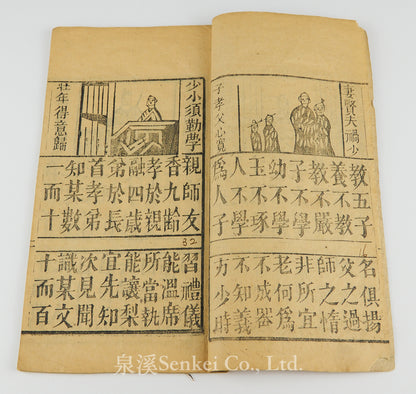 妻賢夫禍少
子孝父心寛
教五子
名俱揚
養不教
父之過
教不嚴
師之惰
子不學
非所宜
幼不學
老何爲
玉不琢
不成器
人不學
不知義
爲人子
方少時
少小須勤學
壯年得意歸
親師友
習禮儀
香九齡
能溫席
孝於親
所當執
融四歲
能讓梨
弟於長
宜先知
首孝弟
次見聞
知某數
識某文
一而十
十而百
32
泉溪Senkei Co., Ltd.